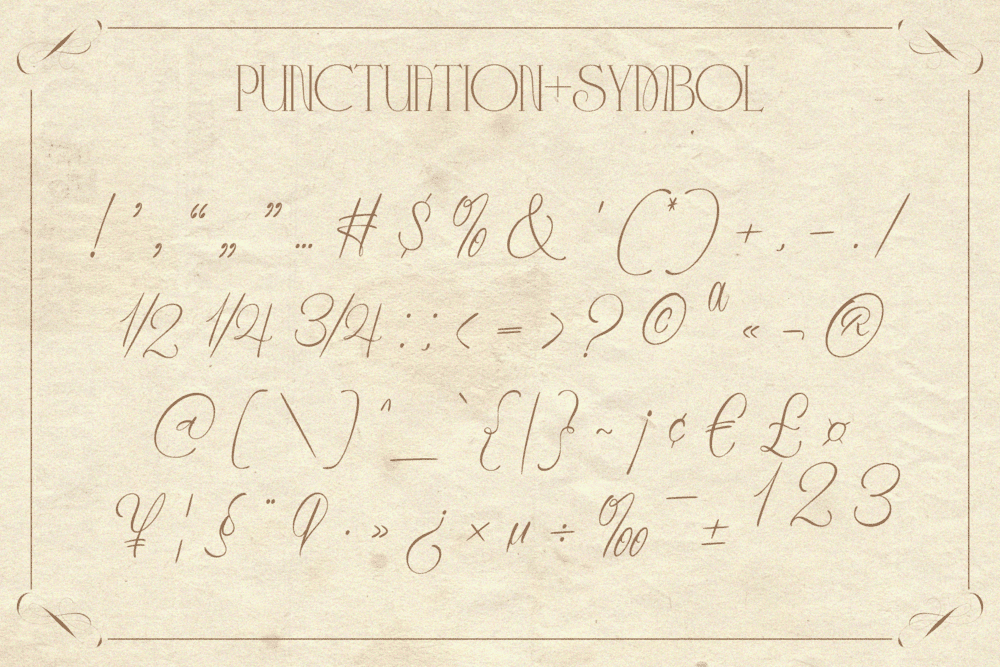 PUNCTUATION+SYMBOL
! ’ , “ „ ” … # $ % & ' ( * ) + , – . /
½ ¼ ¾ : ; < = > ? © ª « ¬ ®
@ [ \ ] ^ _ ` { | } ~ ¡ ¢ € £ ¤
¥ ¦ § ¨ ¶ · » ¿ × µ ÷ ‰ ¯ ± 1 2 3